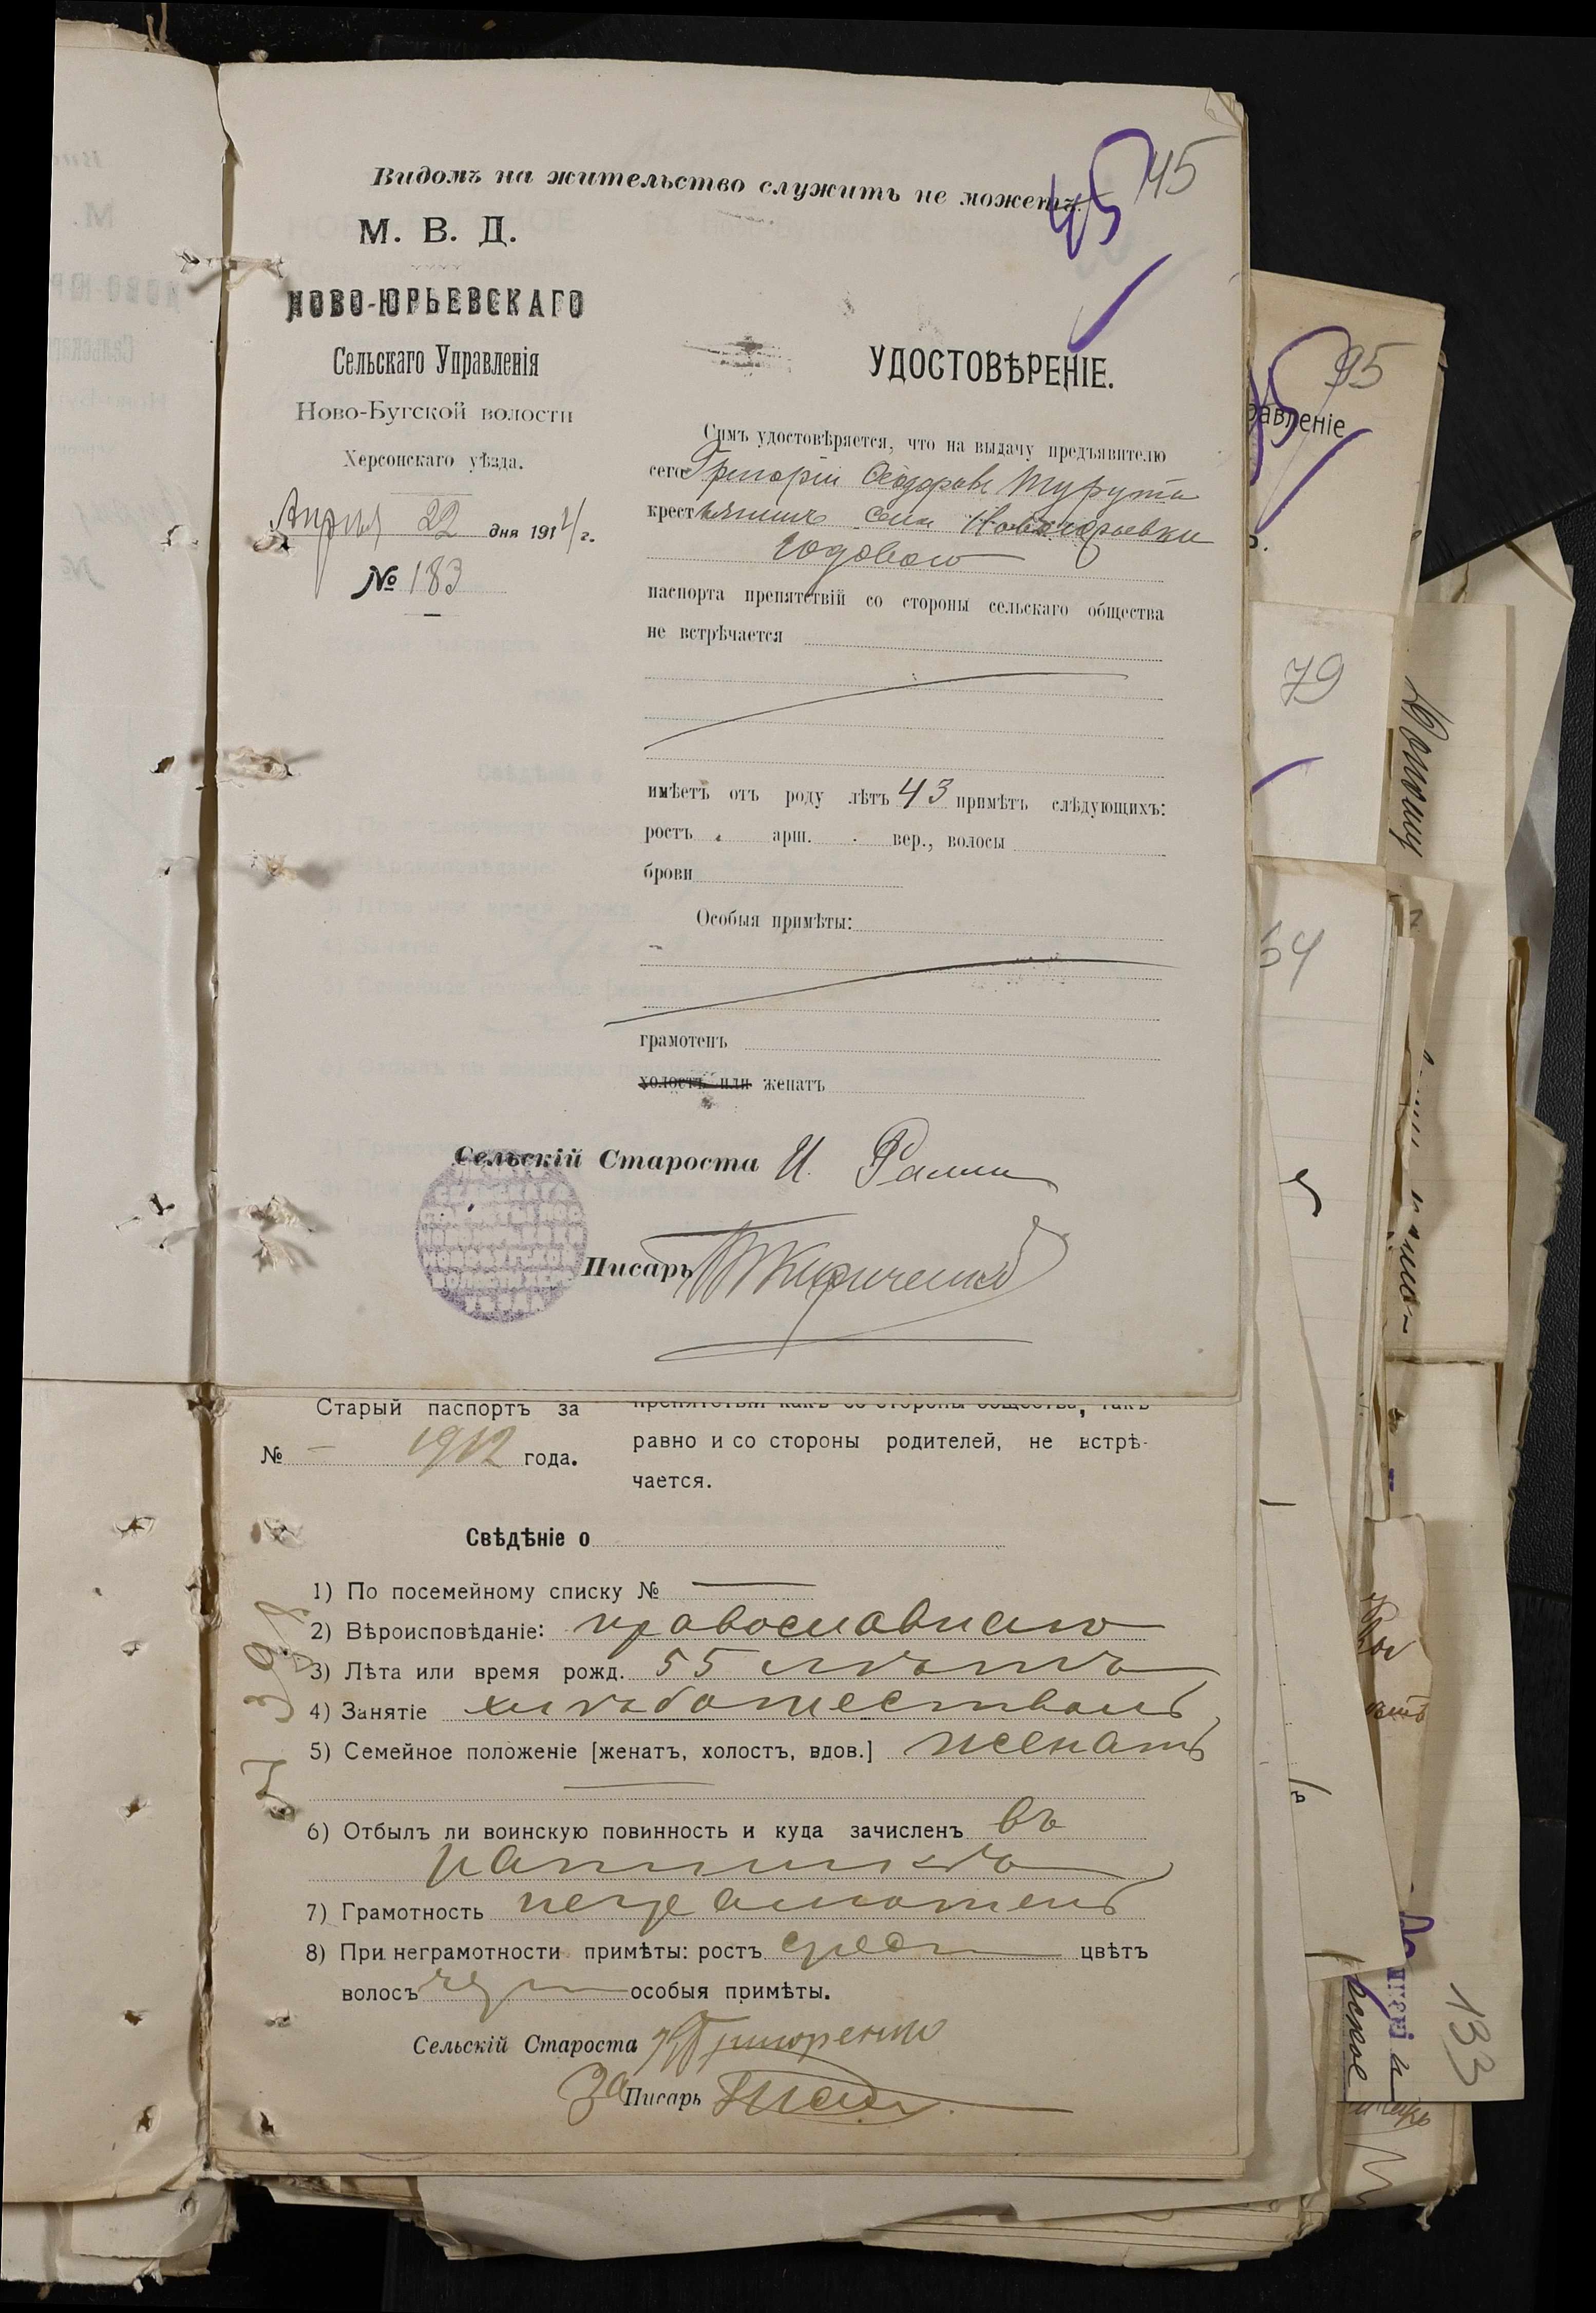 45
45
Видомъ на жительство служить не можетъ.
М. В. Д.
НОВО-ЮРЬЕВСКАГО
Сельскаго Управленія
Ново-Бугской волости
Херсонскаго уѣзда.
Апрѣля 22 дня 1914 г.
№ 183
УДОСТОВѢРЕНІЕ.
Симъ удостовѣряется, что на выдачу предъявителю
сего Григорій Ѳеодоровъ
крестьянинъ села Новоюрьевки
годового
паспорта препятствій со стороны сельскаго общества
не встрѣчается
имѣетъ отъ роду лѣтъ 43 примѣтъ слѣдующихъ:
ростъ арш. вер., волосы
брови
Особыя примѣты:
грамотенъ
холостъ или женатъ
Сельскій Староста И.
Писарь Кириченко
Старый паспортъ за
№ — 1912 года.
препятствій какъ со стороны общества, такъ
равно и со стороны родителей, не встрѣ-
чается.
Свѣдѣніе о
1) По посемейному списку №
2) Вѣроисповѣданіе: православнаго
3) Лѣта или время рожд. 55 лѣтъ
4) Занятіе хлѣбопашествомъ
5) Семейное положеніе [женатъ, холостъ, вдов.] женатъ
6) Отбылъ ли воинскую повинность и куда зачисленъ въ
7) Грамотность неграмотенъ
8) При неграмотности примѣты: ростъ средн цвѣтъ
волосъ особыя примѣты.
Сельскій Староста Григоренко
За Писарь
95
равленіе
79
54
133